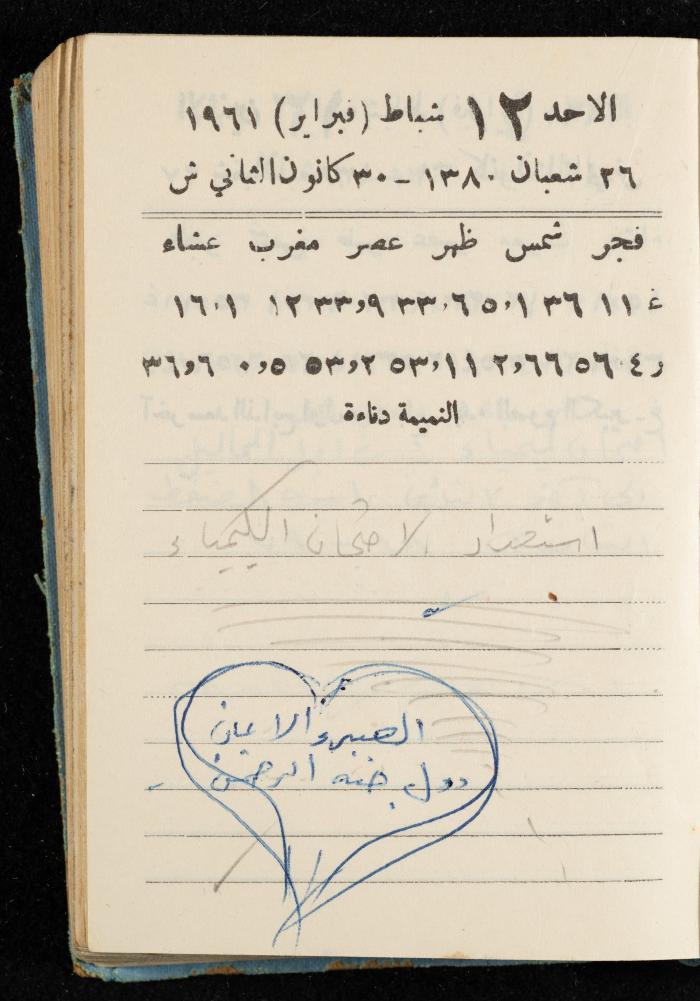 الاحد ١٢ شباط (فبراير) ١٩٦١
٢٦ شعبان ١٣٨٠ – ٣٠ كانون الثاني ش
فجر شمس ظهر عصر مغرب عشاء
غ ١١ ٣٦ ١,٥ ٦,٣٣ ٩,٣٣ ١٢ ١,١٦
ر ٤ ٥٦ ٦٦,٢ ١١,٥٣ ٢,٥٣ ٥,٥ ٦,٣٦
النميمة دناءة
استعداد لامتحان الكيمياء
الصبر والايمان
دول جنه الرحمن